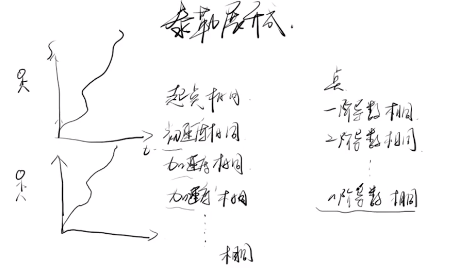 泰勒展开式.
S
t
起点相同
初速度相同
加速度相同
加速度'相同
⋮
相同
点
一阶导数相同
2阶导数相同
⋮
n阶导数相同